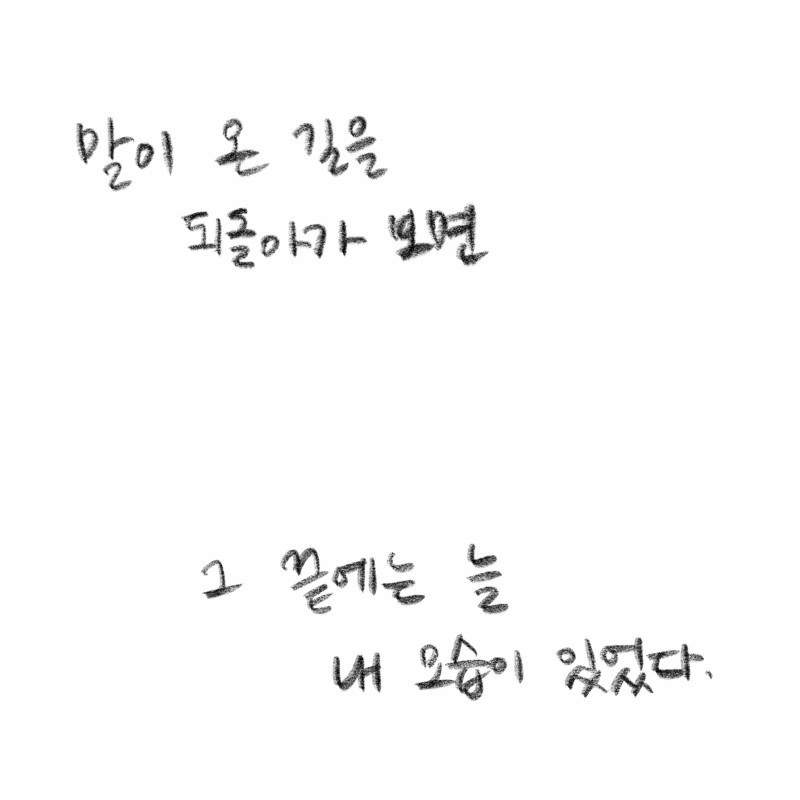 말이 온 길을
되돌아가 보면
그 끝에는 늘
내 모습이 있었다.